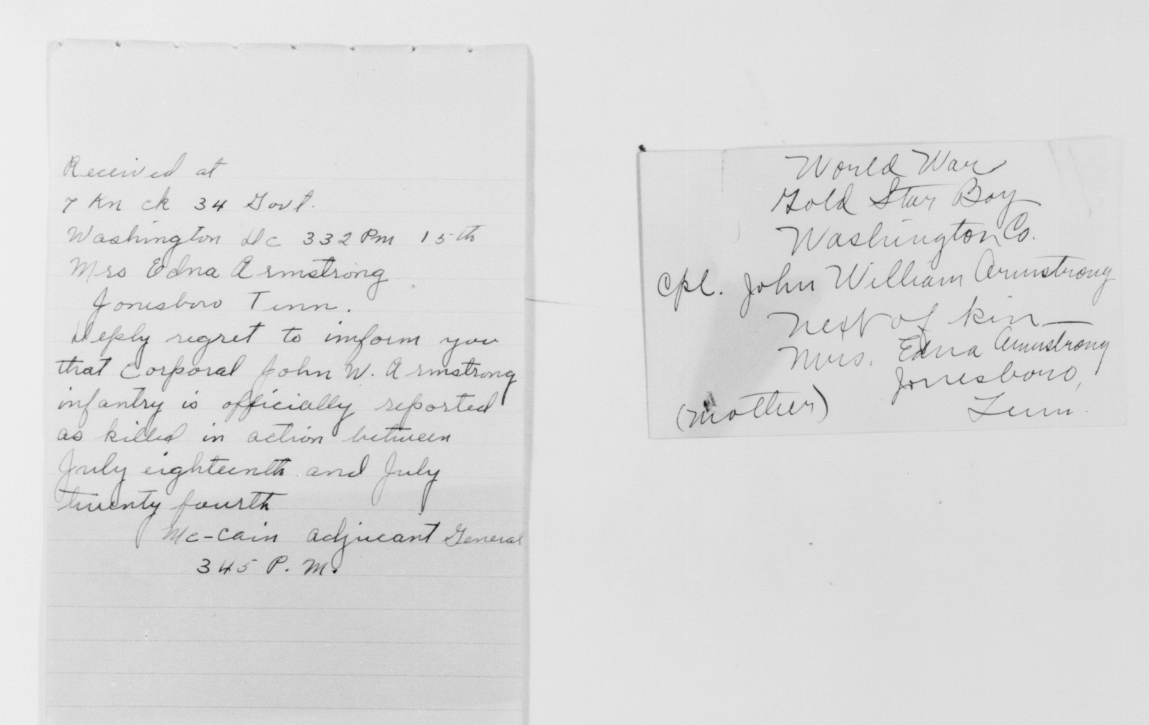 Received at
7 Kn ck 34 Govt.
Washington Dc 332 Pm 15th
Mrs Edna Armstrong
Jonesboro Tenn.
Deply regret to imform you
that Corporal John W. Armstrong
infantry is officially reported
as killed in action between
July eighteenth and July
twenty fourth
Mc-Cain adjucant General
345 P.M.
World War
Gold Star Boy
Washington Co.
Cpl. John William Armstrong
Next of kin
Mrs. Edna Armstrong
Jonesboro,
(Mother) Tenn.